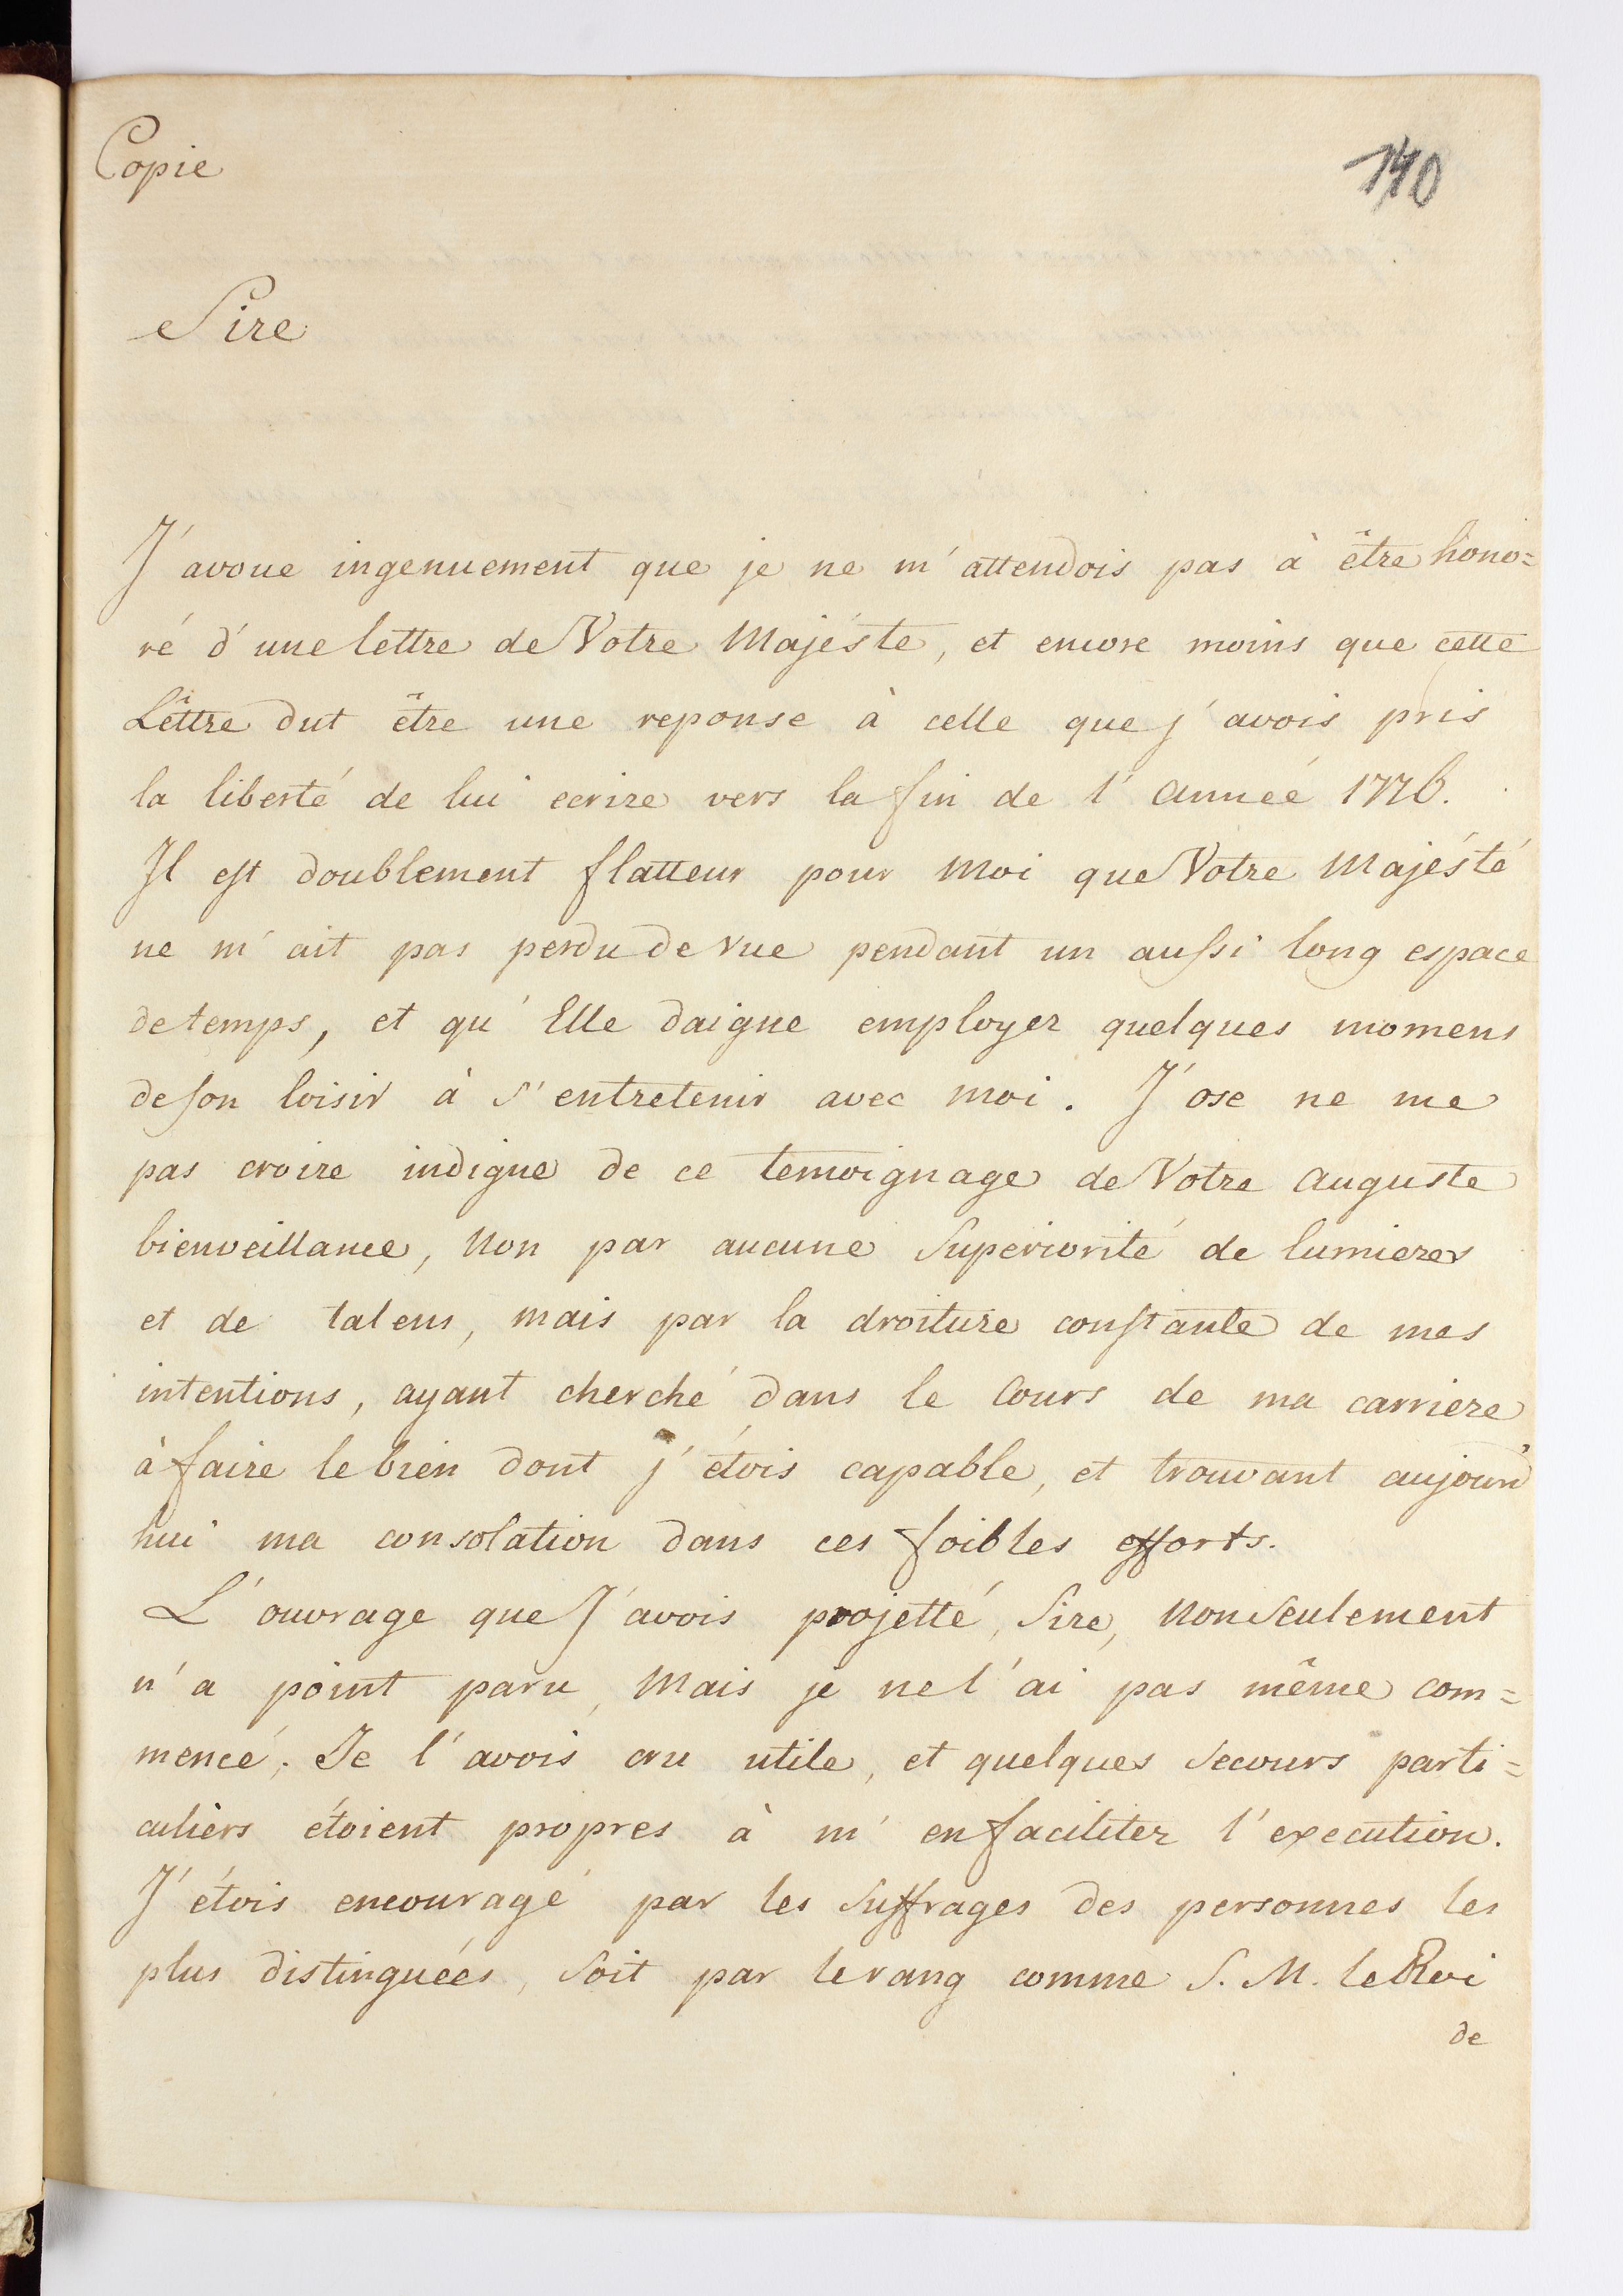 Copie
140
Sire
J'avoue ingenuement que je ne m'attendois pas à être hono=
ré d'une lettre de Votre Majésté, et encore moins que cette
Lettre dut être une reponse à celle que j'avois pris
la liberté de lui ecrire vers la fin de l'année 1776.
Il est doublement flatteur pour Moi que Votre Majésté
ne m'ait pas perdu de vue pendant un aussi long espace
de temps, et qu'Elle daigne employer quelques momens
de son loisir à s'entretenir avec moi. J'ose ne me
pas croire indigne de ce temoignage de Votre Auguste
bienveillance, Non par aucune Superiorité de lumieres
et de talens, mais par la droiture constante de mes
intentions, ayant cherché dans le Cours de ma carriere
à faire le bien dont j'étois capable, et trouvant aujourd'
hui ma consolation dans ces foibles efforts.
L'ouvrage que J'avois projetté, Sire, Non seulement
n'a point paru, Mais je ne l'ai pas même com=
mencé; Je l'avois cru utile, et quelques Secours parti=
culièrs étoient propres à m'en faciliter l'execution.
J'étois encouragé par les Suffrages des personnes les
plus distinguées, Soit par le rang comme S. M. le Roi
de